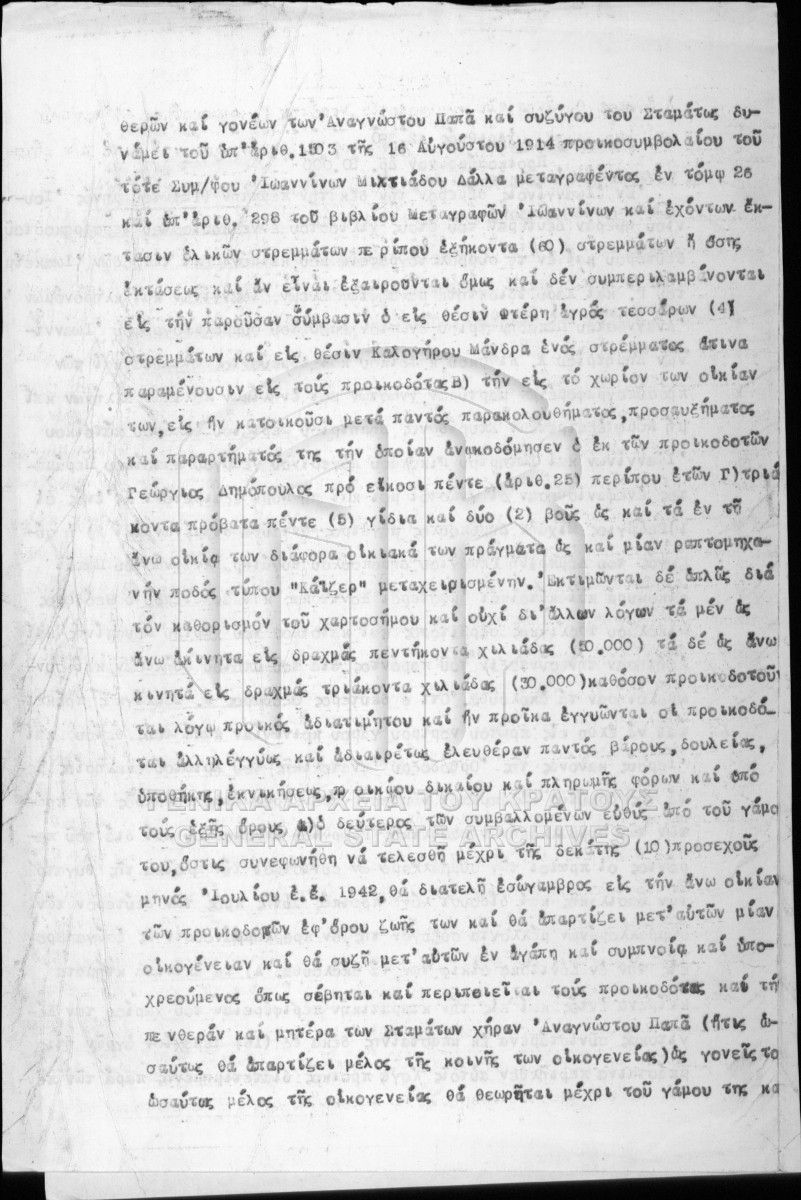 θερῶν καί γονέων των Ἀναγνώστου Παπᾶ καί συζύγου του Σταμάτως δυ-
νάμει τοῦ ὑπ' ἀριθ. 1503 τῆς 16 Αὐγούστου 1914 προικοσυμβολαίου τοῦ
τότε Συμ/φου Ἰωαννίνων Μιλτιάδου Δάλλα μεταγραφέντος ἐν τόμῳ 26
καί ὑπ' ἀριθ. 298 τοῦ βιβλίου Μεταγραφῶν Ἰωαννίνων καί ἐχόντων ἔκ-
τασιν ὁλικῶν στρεμμάτων περίπου ἑξήκοντα (60) στρεμμάτων ἤ ὅσης
ἐκτάσεως καί ἄν εἶναι ἐξαιροῦνται ὅμως καί δέν συμπεριλαμβάνονται
εἰς τήν παροῦσαν σύμβασιν ὁ εἰς θέσιν Φτέρη ἀγρός τεσσάρων (4)
στρεμμάτων καί εἰς θέσιν Καλογήρου Μάνδρα ἑνός στρέμματος ἅτινα
παραμένουσιν εἰς τούς προικοδότας Β) τήν εἰς τό χωρίον των οἰκίαν
των, εἰς ἥν κατοικοῦσι μετά παντός παρακολουθήματος, προσαυξήματος
καί παραρτήματός της τήν ὁποίαν ἀνωκοδόμησεν ὁ ἐκ τῶν προικοδοτῶν
Γεώργιος Δημόπουλος πρό εἴκοσι πέντε (ἀριθ. 25) περίπου ἐτῶν Γ) τριά
κοντα πρόβατα πέντε (5) γίδια καί δύο (2) βοῦς ὡς καί τά ἐν τῇ
ἄνω οἰκίᾳ των διάφορα οἰκιακά των πράγματα ὡς καί μίαν ραπτομηχα-
νήν ποδός τύπου "Κάϊζερ" μεταχειρισμένην. Ἐκτιμῶνται δέ ἁπλῶς διά
τόν καθορισμόν τοῦ χαρτοσήμου καί οὐχί δι' ἄλλων λόγων τά μέν ὡς
ἄνω ἀκίνητα εἰς δραχμάς πεντήκοντα χιλιάδας (50.000) τά δέ ὡς ἄνω
κινητά εἰς δραχμάς τριάκοντα χιλιάδας (30.000) καθόσον προικοδοτοῦν
ται λόγῳ προικός ἀδιατιμήτου καί ἥν προῖκα ἐγγυῶνται οἱ προικοδό-
ται ἀλληλέγγύως καί ἀδιαιρέτως ἐλευθέραν παντός βάρους, δουλείας,
ὑποθήκης, ἐκνικήσεως, προικῴου δικαίου καί πληρωμῆς φόρων καί ὑπό
τούς ἑξῆς ὅρους α) ὁ δεύτερος τῶν συμβαλλομένων εὐθύς ἀπό τοῦ γάμο
του, ὅστις συνεφωνήθη νά τελεσθῇ μέχρι τῆς δεκάτης (10) προσεχοῦς
μηνός Ἰουλίου ἐ.ἔ. 1942, θά διατελῇ ἐσώγαμβρος εἰς τήν ἄνω οἰκίαν
τῶν προικοδοτῶν ἐφ' ὅρου ζωῆς των καί θά ἀπαρτίζει μετ' αὐτῶν μίαν
οἰκογένειαν καί θά συζῇ μετ' αὐτῶν ἐν ἀγάπῃ καί συμπνοίᾳ καί ὑπο-
χρεούμενος ὅπως σέβηται καί περιποιεῖται τούς προικοδότας καί τή
πενθεράν καί μητέρα των Σταμάτων χήραν Ἀναγνώστου Παπᾶ (ἥτις ὡ-
σαύτως θά ἀπαρτίζει μέλος τῆς κοινῆς των οἰκογενείας) ὡς γονεῖς το
ὡσαύτως μέλος τῆς οἰκογενείας θά θεωρῆται μέχρι τοῦ γάμου της κα
ΓΕΝΙΚΑ ΑΡΧΕΙΑ ΤΟΥ ΚΡΑΤΟΥΣ
GENERAL STATE ARCHIVES